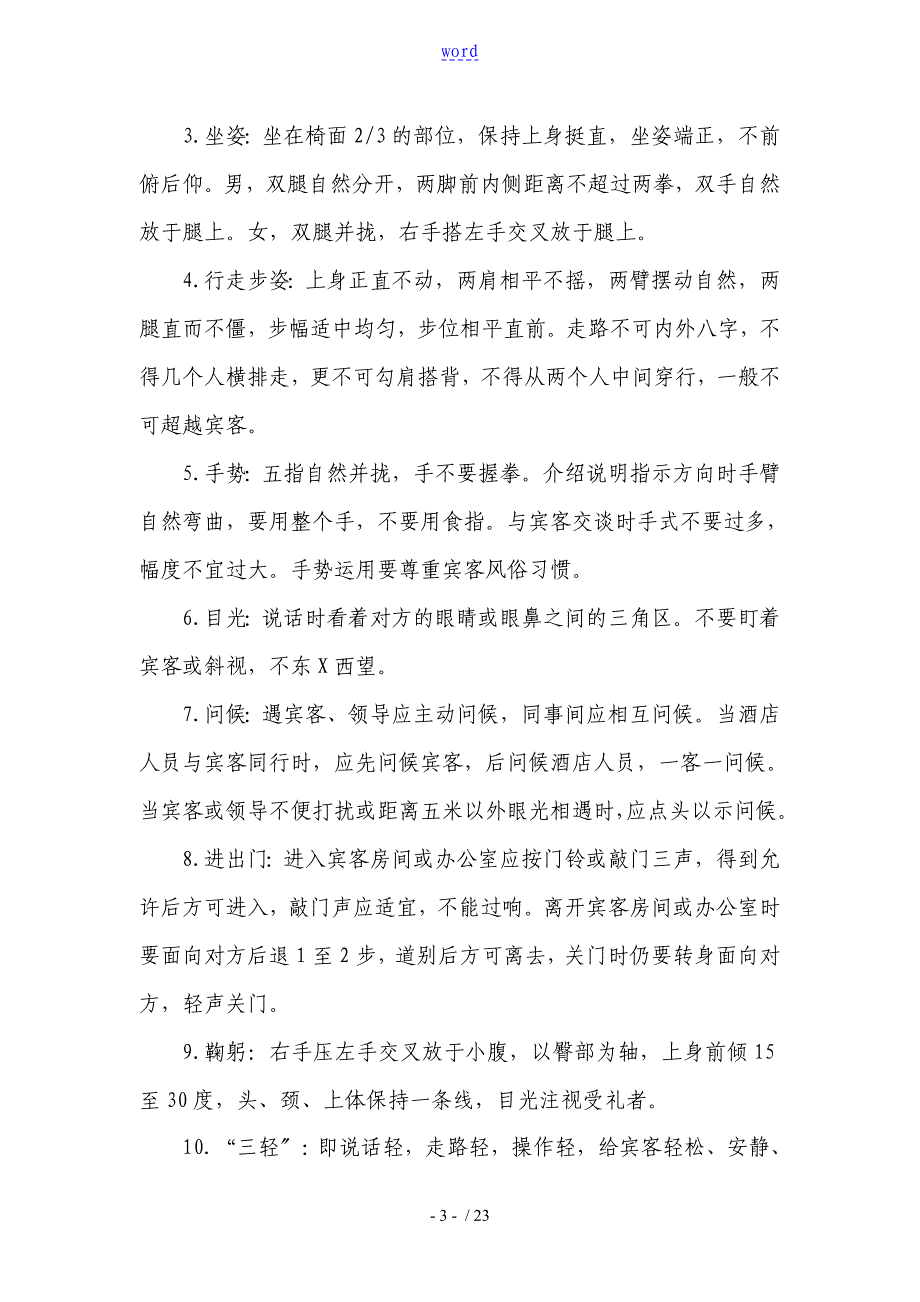 word
3.坐姿：坐在椅面 2/3 的部位，保持上身挺直，坐姿端正，不前
俯后仰。男，双腿自然分开，两脚前内侧距离不超过两拳，双手自然
放于腿上。女，双腿并拢，右手搭左手交叉放于腿上。
4.行走步姿：上身正直不动，两肩相平不摇，两臂摆动自然，两
腿直而不僵，步幅适中均匀，步位相平直前。走路不可内外八字，不
得几个人横排走，更不可勾肩搭背，不得从两个人中间穿行，一般不
可超越宾客。
5.手势：五指自然并拢，手不要握拳。介绍说明指示方向时手臂
自然弯曲，要用整个手，不要用食指。与宾客交谈时手式不要过多，
幅度不宜过大。手势运用要尊重宾客风俗习惯。
6.目光：说话时看着对方的眼睛或眼鼻之间的三角区。不要盯着
宾客或斜视，不东 X 西望。
7.问候：遇宾客、领导应主动问候，同事间应相互问候。当酒店
人员与宾客同行时，应先问候宾客，后问候酒店人员，一客一问候。
当宾客或领导不便打扰或距离五米以外眼光相遇时，应点头以示问候。
8.进出门：进入宾客房间或办公室应按门铃或敲门三声，得到允
许后方可进入，敲门声应适宜，不能过响。离开宾客房间或办公室时
要面向对方后退 1 至 2 步，道别后方可离去，关门时仍要转身面向对
方，轻声关门。
9.鞠躬：右手压左手交叉放于小腹，以臀部为轴，上身前倾 15
至 30 度，头、颈、上体保持一条线，目光注视受礼者。
10.“三轻〞：即说话轻，走路轻，操作轻，给宾客轻松、安静、
- 3 - / 23